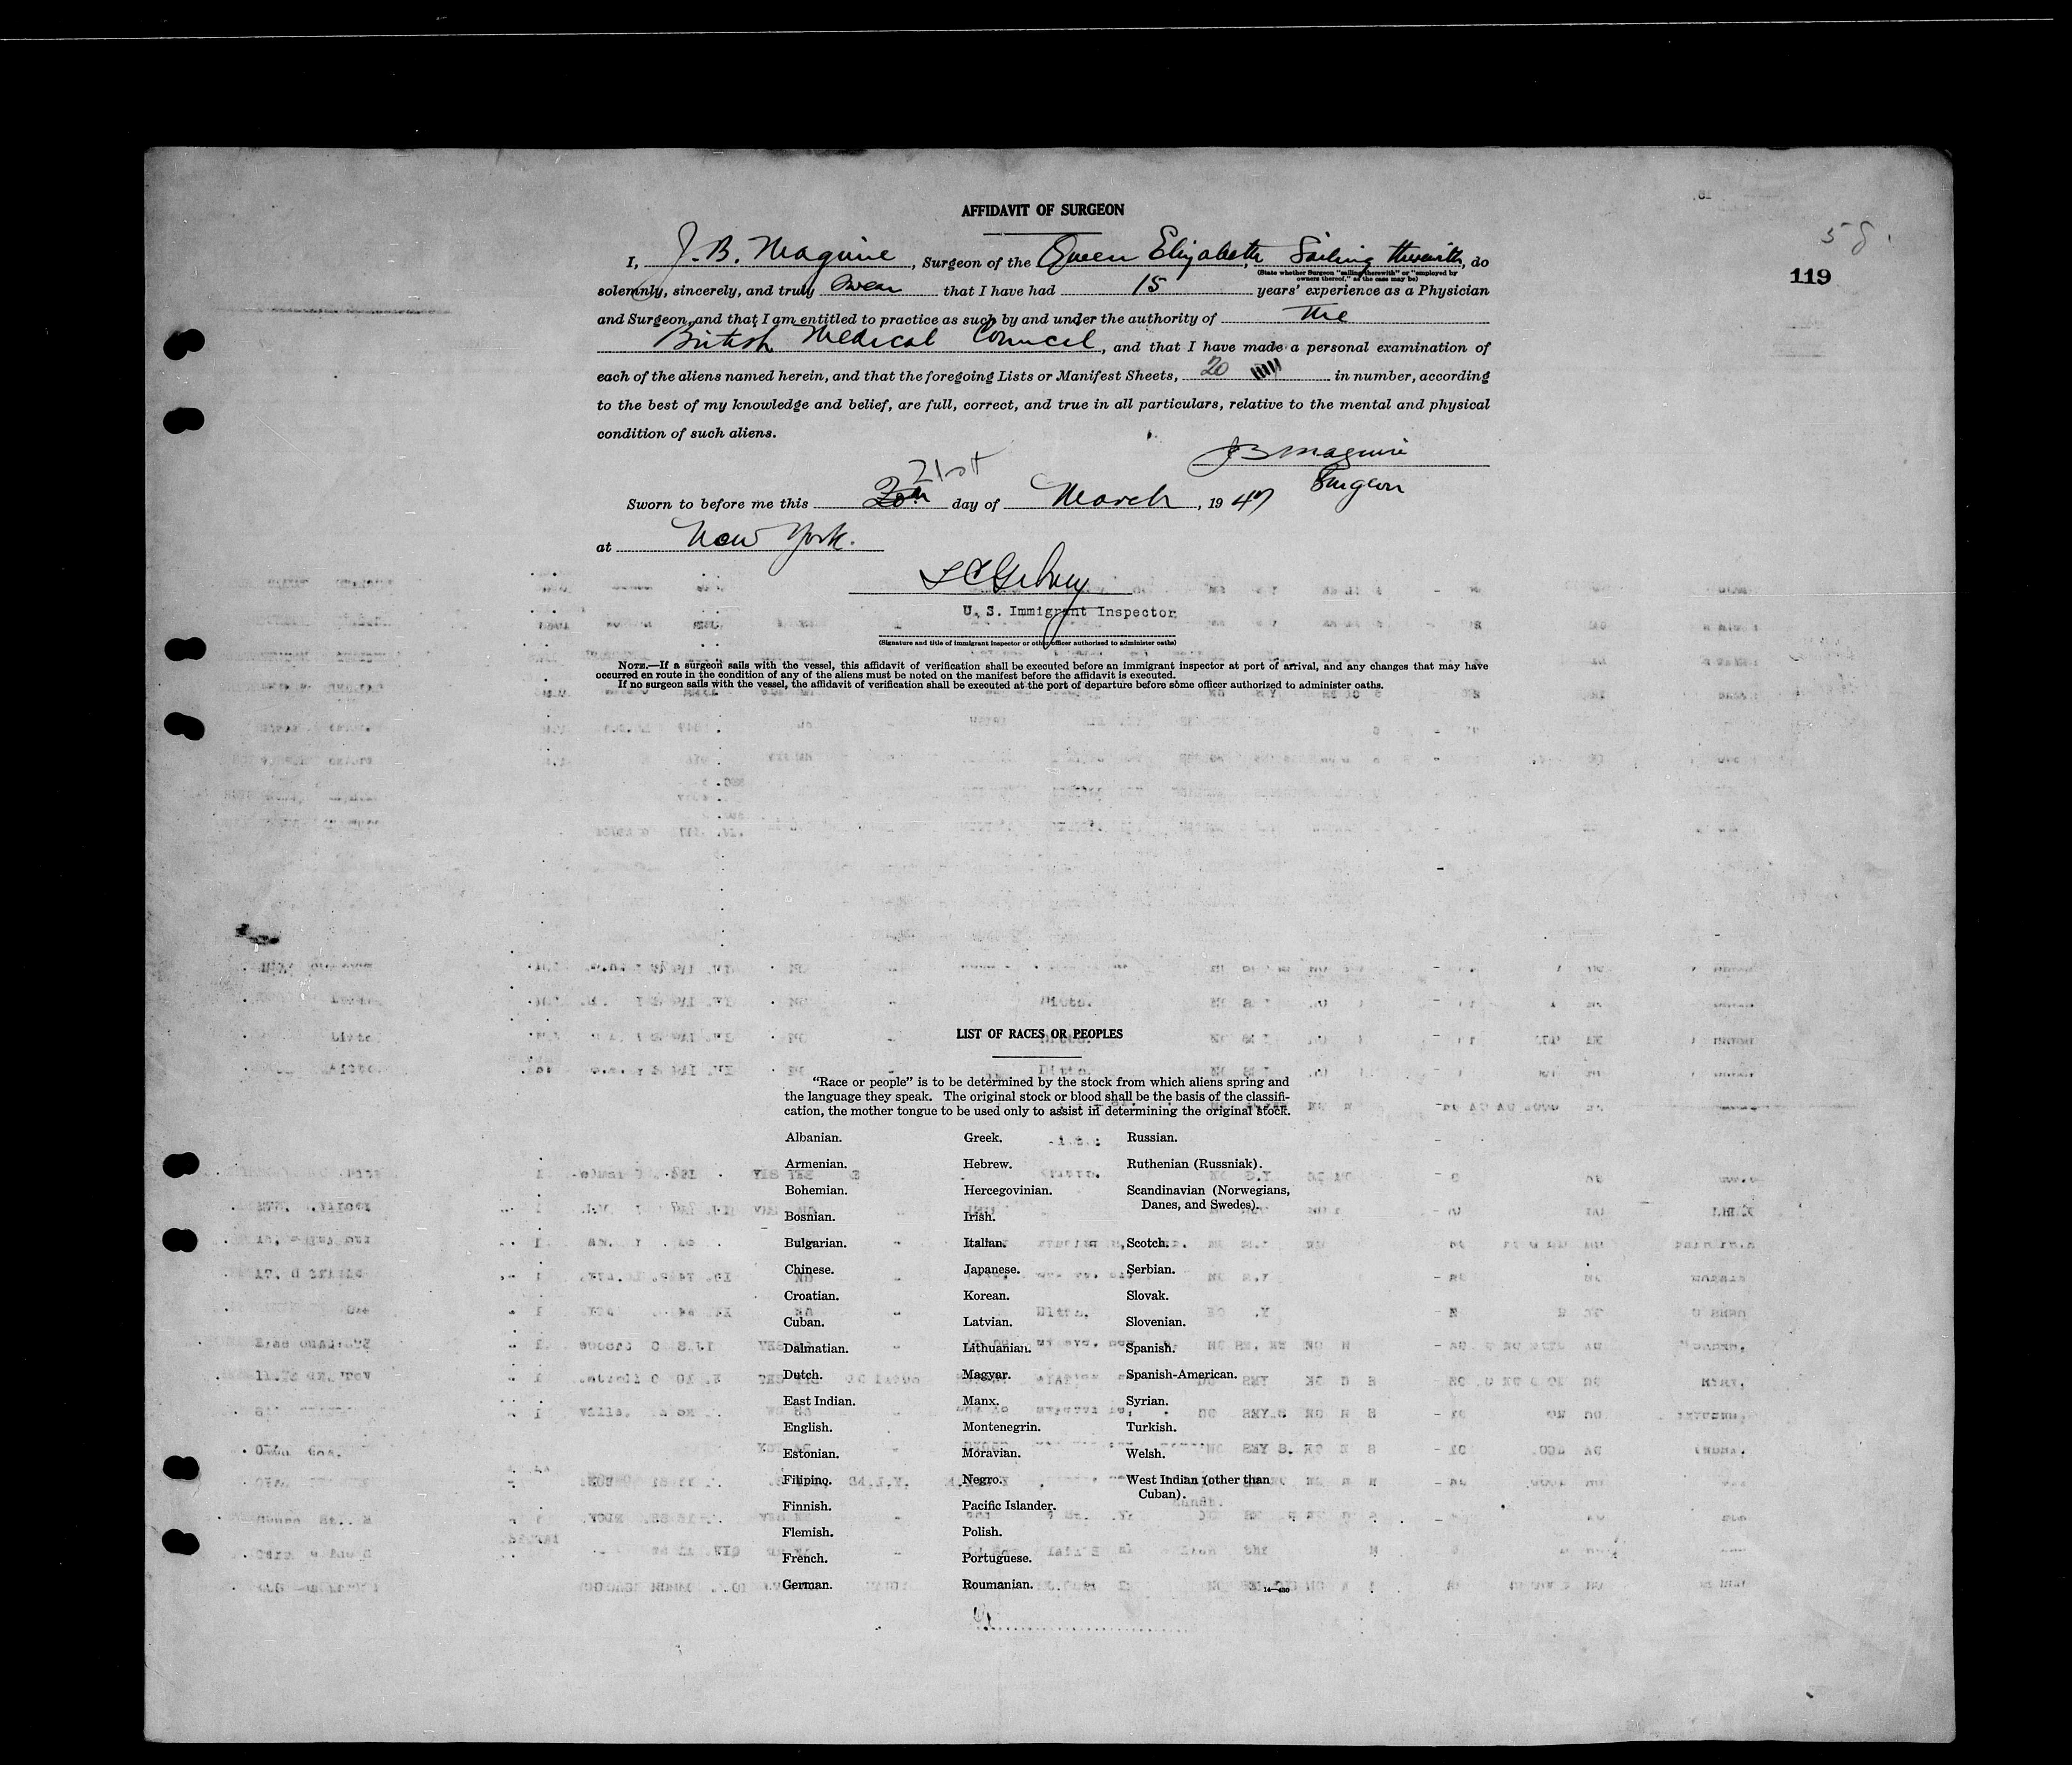 58
119
AFFIDAVIT OF SURGEON
I, J. B. Maguire, Surgeon of the Queen Elizabeth, Sailing therewith, do
(State whether Surgeon "sailing therewith" or "employed by
owners thereof," as the case may be)
solemnly, sincerely, and truly swear that I have had 15 years' experience as a Physician
and Surgeon, and that I am entitled to practice as such by and under the authority of the
British Medical Council, and that I have made a personal examination of
each of the aliens named herein, and that the foregoing Lists or Manifest Sheets, 20 in number, according
to the best of my knowledge and belief, are full, correct, and true in all particulars, relative to the mental and physical
condition of such aliens.
JB Maguire
Surgeon
21st
Sworn to before me this 20th day of March, 19 47
at New York.
U. S. Immigrant Inspector
(Signature and title of immigrant inspector or other officer authorized to administer oaths)
NOTE.—If a surgeon sails with the vessel, this affidavit of verification shall be executed before an immigrant inspector at port of arrival, and any changes that may have
occurred en route in the condition of any of the aliens must be noted on the manifest before the affidavit is executed.
If no surgeon sails with the vessel, the affidavit of verification shall be executed at the port of departure before some officer authorized to administer oaths.
LIST OF RACES OR PEOPLES
"Race or people" is to be determined by the stock from which aliens spring and
the language they speak. The original stock or blood shall be the basis of the classifi-
cation, the mother tongue to be used only to assist in determining the original stock.
Albanian.
Armenian.
Bohemian.
Bosnian.
Bulgarian.
Chinese.
Croatian.
Cuban.
Dalmatian.
Dutch.
East Indian.
English.
Estonian.
Filipino.
Finnish.
Flemish.
French.
German.
Greek.
Hebrew.
Hercegovinian.
Irish.
Italian.
Japanese.
Korean.
Latvian.
Lithuanian.
Magyar.
Manx.
Montenegrin.
Moravian.
Negro.
Pacific Islander.
Polish.
Portuguese.
Roumanian.
Russian.
Ruthenian (Russniak).
Scandinavian (Norwegians,
Danes, and Swedes).
Scotch.
Serbian.
Slovak.
Slovenian.
Spanish.
Spanish-American.
Syrian.
Turkish.
Welsh.
West Indian (other than
Cuban).
14—430